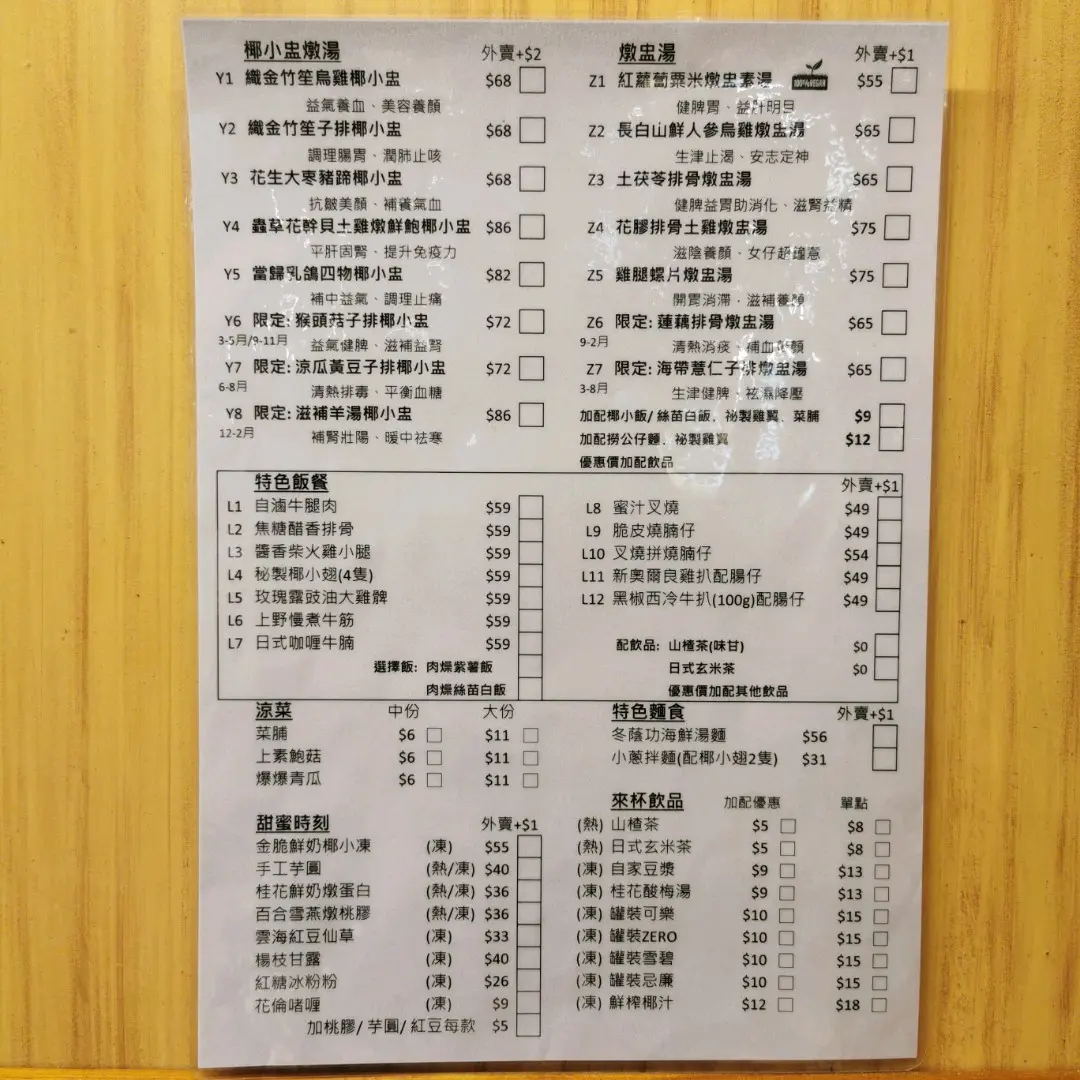 椰小盅燉湯 外賣+$2
Y1 織金竹笙烏雞椰小盅 $68
益氣養血、美容養顏
Y2 織金竹笙子排椰小盅 $68
調理腸胃、潤肺止咳
Y3 花生大枣豬蹄椰小盅 $68
抗皺美顏、補養氣血
Y4 蟲草花幹貝土雞燉鮮鮑椰小盅 $86
平肝固腎、提升免疫力
Y5 當歸乳鴿四物椰小盅 $82
補中益氣、調理止痛
Y6 限定: 猴頭菇子排椰小盅 $72
3-5月/9-11月 益氣健脾、滋補益腎
Y7 限定: 涼瓜黃豆子排椰小盅 $72
6-8月 清熱排毒、平衡血糖
Y8 限定: 滋補羊湯椰小盅 $86
12-2月 補腎壯陽、暖中祛寒
燉盅湯 外賣+$1
Z1 紅蘿蔔粟米燉盅素湯 100% VEGAN $55
健脾胃、益肝明目
Z2 長白山鮮人參烏雞燉盅湯 $65
生津止渴、安志定神
Z3 土茯苓排骨燉盅湯 $65
健脾益胃助消化、滋腎益精
Z4 花膠排骨土雞燉盅湯 $75
滋陰養顏、女仔超鐘意
Z5 雞腿螺片燉盅湯 $75
開胃消滯．滋補養顏
Z6 限定: 蓮藕排骨燉盅湯 $65
9-2月 清熱消痰、補血養顏
Z7 限定: 海帶薏仁子排燉盅湯 $65
3-8月 生津健脾、祛濕降壓
加配椰小飯/ 絲苗白飯、祕製雞翼、菜脯 $9
加配撈公仔麵、祕製雞翼 $12
優惠價加配飲品
特色飯餐
L1 自滷牛腿肉 $59
L2 焦糖醋香排骨 $59
L3 醬香柴火雞小腿 $59
L4 秘製椰小翅(4隻) $59
L5 玫瑰露豉油大雞髀 $59
L6 上野慢煮牛筋 $59
L7 日式咖喱牛腩 $59
選擇飯: 肉燥紫薯飯
肉燥絲苗白飯
外賣+$1
L8 蜜汁叉燒 $49
L9 脆皮燒腩仔 $49
L10 叉燒拼燒腩仔 $54
L11 新奧爾良雞扒配腸仔 $49
L12 黑椒西冷牛扒(100g)配腸仔 $49
配飲品: 山楂茶(味甘) $0
日式玄米茶 $0
優惠價加配其他飲品
涼菜 中份 大份
菜脯 $6 $11
上素鮑菇 $6 $11
爆爆青瓜 $6 $11
特色麵食 外賣+$1
冬蔭功海鮮湯麵 $56
小蔥拌麵(配椰小翅2隻) $31
甜蜜時刻 外賣+$1
金脆鮮奶椰小凍 (凍) $55
手工芋圓 (熱/凍) $40
桂花鮮奶燉蛋白 (熱/凍) $36
百合雪燕燉桃膠 (熱/凍) $36
雲海紅豆仙草 (凍) $33
楊枝甘露 (凍) $40
紅糖冰粉粉 (凍) $26
花倫啫喱 (凍) $9
加桃膠/ 芋圓/ 紅豆每款 $5
來杯飲品 加配優惠 單點
(熱) 山楂茶 $5 $8
(熱) 日式玄米茶 $5 $8
(凍) 自家豆漿 $9 $13
(凍) 桂花酸梅湯 $9 $13
(凍) 罐裝可樂 $10 $15
(凍) 罐裝ZERO $10 $15
(凍) 罐裝雪碧 $10 $15
(凍) 罐裝忌廉 $10 $15
(凍) 鮮榨椰汁 $12 $18